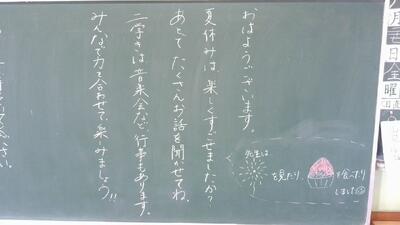 おはようございます。
夏休みは、楽しくすごせましたか？
あとで たくさんお話を聞かせてね。
二学きは 音楽会など、行事もあります。
みんなで力を合わせて、楽しみましょう!!
先生は
を見たり、
を食べたり
しました
月
日
金
曜
日直